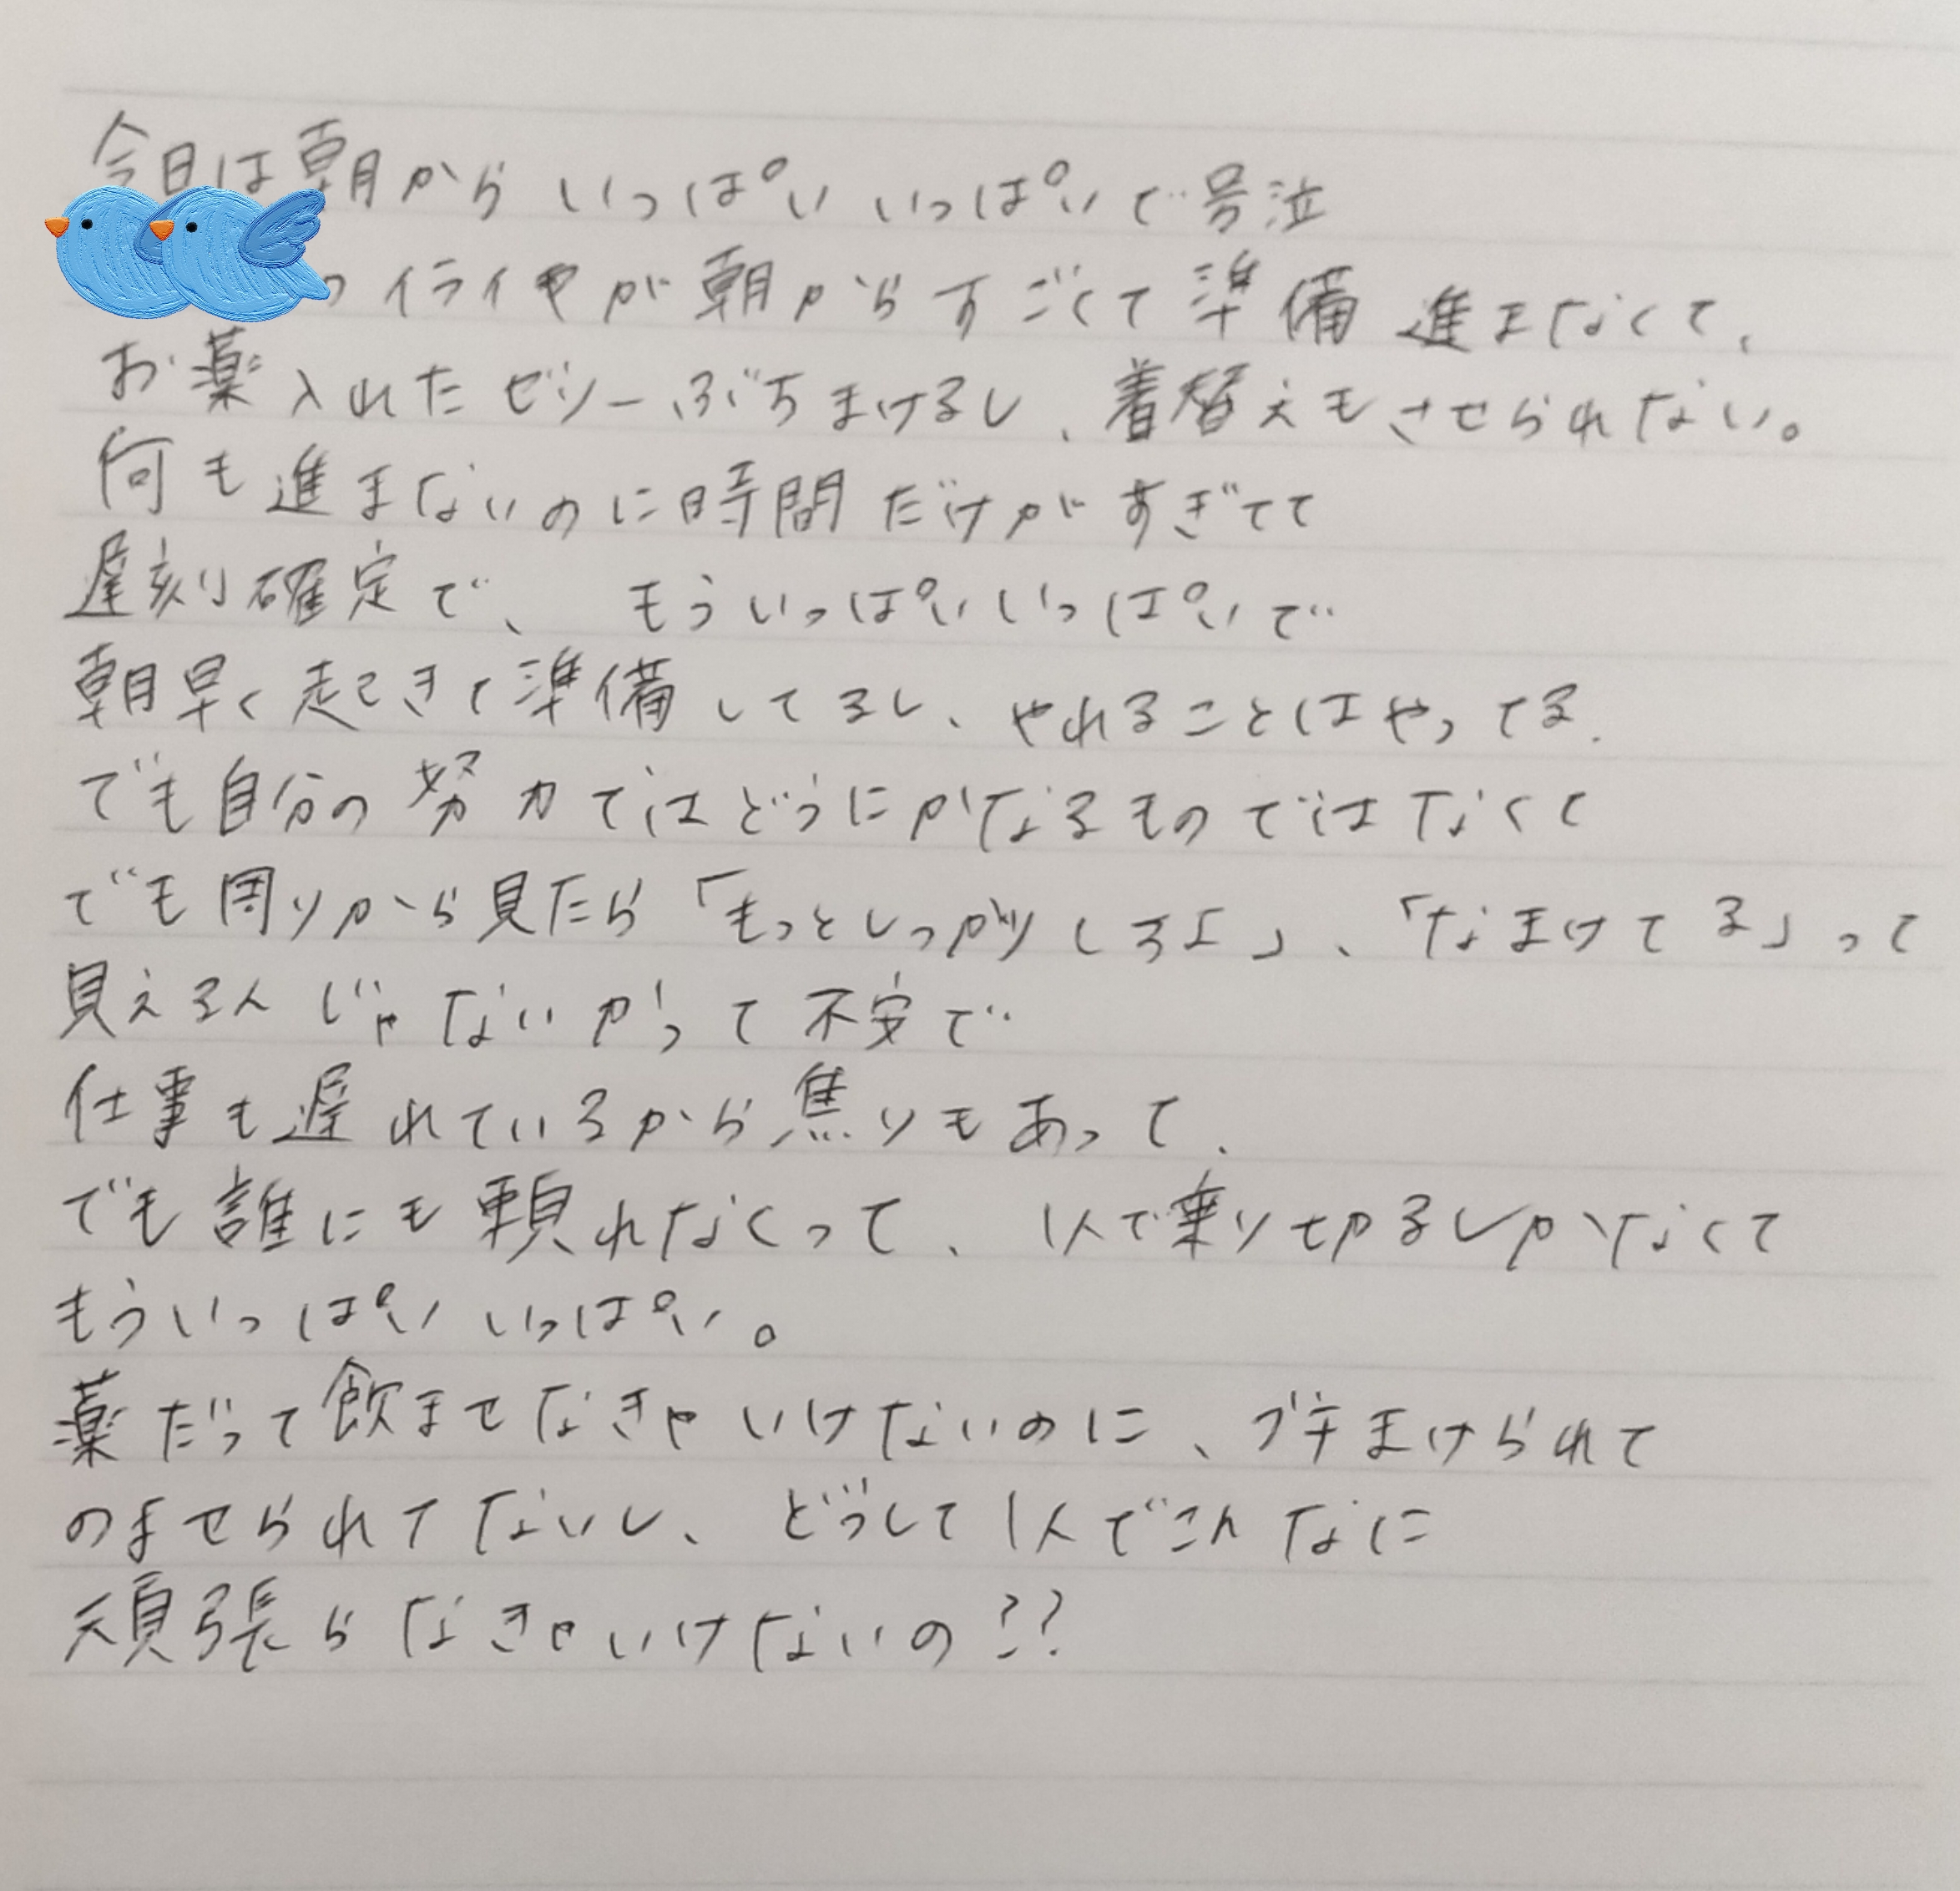 今日は朝からいっぱいいっぱいで号泣
イライヤが朝からすごくて準備進まなくて、
お薬入れたゼリーぶちまけるし、着替えもさせられない。
何も進まないのに時間だけがすぎてて
遅刻確定で、もういっぱいいっぱいで
朝早く起きて準備してるし、やれることはやってる.
でも自分の努力ではどうにかなるものではなくて
でも周りから見たら「もっとしっかりしろよ」、「なまけてる」って
見えるんじゃないかって不安で
仕事も遅れているから焦りもあって、
でも誰にも頼れなくって、1人で乗り切るしかなくて
もういっぱいいっぱい。
薬だって飲ませなきゃいけないのに、ブチまけられて
のませられてないし、どうして1人でこんなに
頑張らなきゃいけないの??